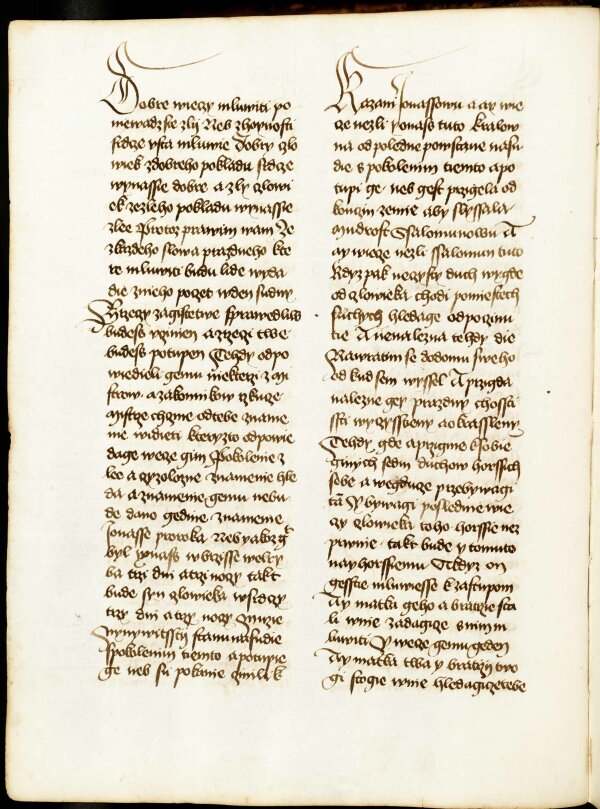 Dobre wieczy mluwiti po
niewadz ste zlij Neb zhoynosti
srdcze vsta mluwie Dobry czlo
wiek zdobreho pokladu srdcze
wynassie dobre a zly czlowi
ek zezleho pokladu wynassie
zlee Protoz prawim wam Ze
zkazdeho slowa prazdneho kte
re mluwiti budu lide wyda
die znieho poczet wden sudny
Nrzeczy zagistetwe sprawedliw
budess vczinen a zrzeczi twe
budess potupen Tehdy odpo
wiedieli gemu niekterzi z mi
strow a zakonnikow rzkucze
mistrze chczme odtebe zname
nie widieti kteryzto odpowie
dage wecze gim Pokolenie z
lee a czyzolozne znamenie hle
da a znamenie gemu nebu
de dano gedine znamenie
Jonasse proroka Neb yakoz g
byl yonass wbrzisse welry
ba trzi dni a trzi noczy takt
bude syn czlowieka wsrdczy
trzy dni a trzy noczy zemie
Nynywitssti stanu nasudie
spokolenim tiemto a potupie
ge neb su pokanie czinili k
Kazani Jonassowu a ay wie
cze nezli yonass tuto Kralow
na odpoledne powstane nasu
die s pokolenim tiemto a po
tupi ge neb gest przigela od
konczin zemie aby slyssala
mudrost Ssalomunowu A
ay wiecze nezli ssalomun tuto
Kdyz pak neczysty duch wygde
od czlowieka chodi pomiestech
suchych hledage odpoczinu
tie A nenalezna tehdy die
Nawratim se dodomu sweho
od kud sem wyssel A przigda
nalezne gey prazdny chossti
ssti wyczyssieny a okrassleny
Tehdy gde a przigme ksobie
ginych sedm duchow horssich
sebe a wegducze przebywagi
ta Y bywagi poslednie wie
czy czlowieka toho horssie nez
prwnie takt bude y tomuto
nayhorssiemu Tehdyz on
gesstie mluwiesse k zastupom
Ay matka geho a bratrzie sta
li wnie zadagicze s nim m
luwiti Y wecze gemu geden
Ay matka twa y bratrzij two
gi stogie wnie hledagicze tebe